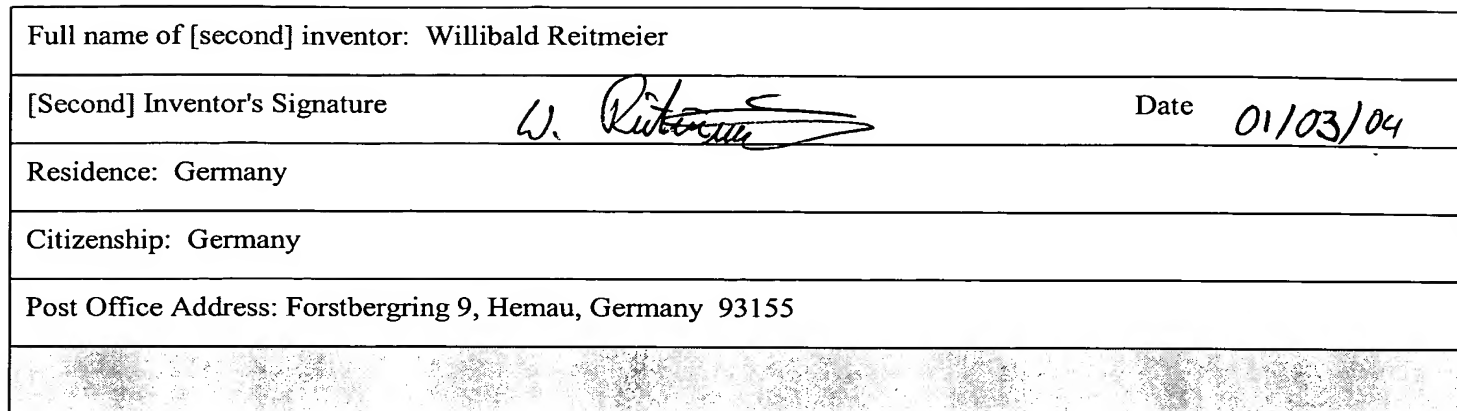 Full name of [second] inventor: Willibald Reitmeier
[Second] Inventor's Signature W. Reitmeier Date 01/03/04
Residence: Germany
Citizenship: Germany
Post Office Address: Forstbergring 9, Hemau, Germany 93155